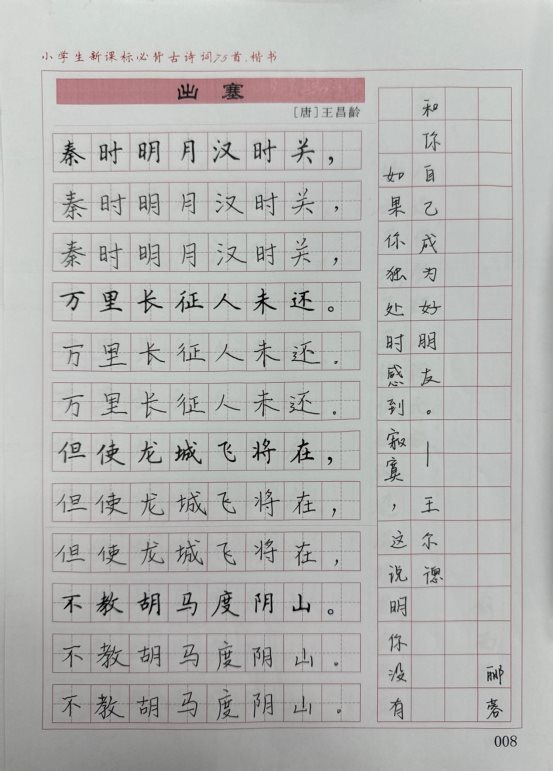 小学生新课标必背古诗词75首.楷书
出塞
[唐]王昌龄
秦时明月汉时关，
秦时明月汉时关，
秦时明月汉时关，
万里长征人未还。
万里长征人未还.
万里长征人未还.
但使龙城飞将在，
但使龙城飞将在，
但使龙城飞将在，
不教胡马度阴山。
不教胡马度阴山。
不教胡马度阴山。
如果你独处时感到寂寞，这说明你没有
和你自己成为好朋友。—王尔德
郦蓉
008